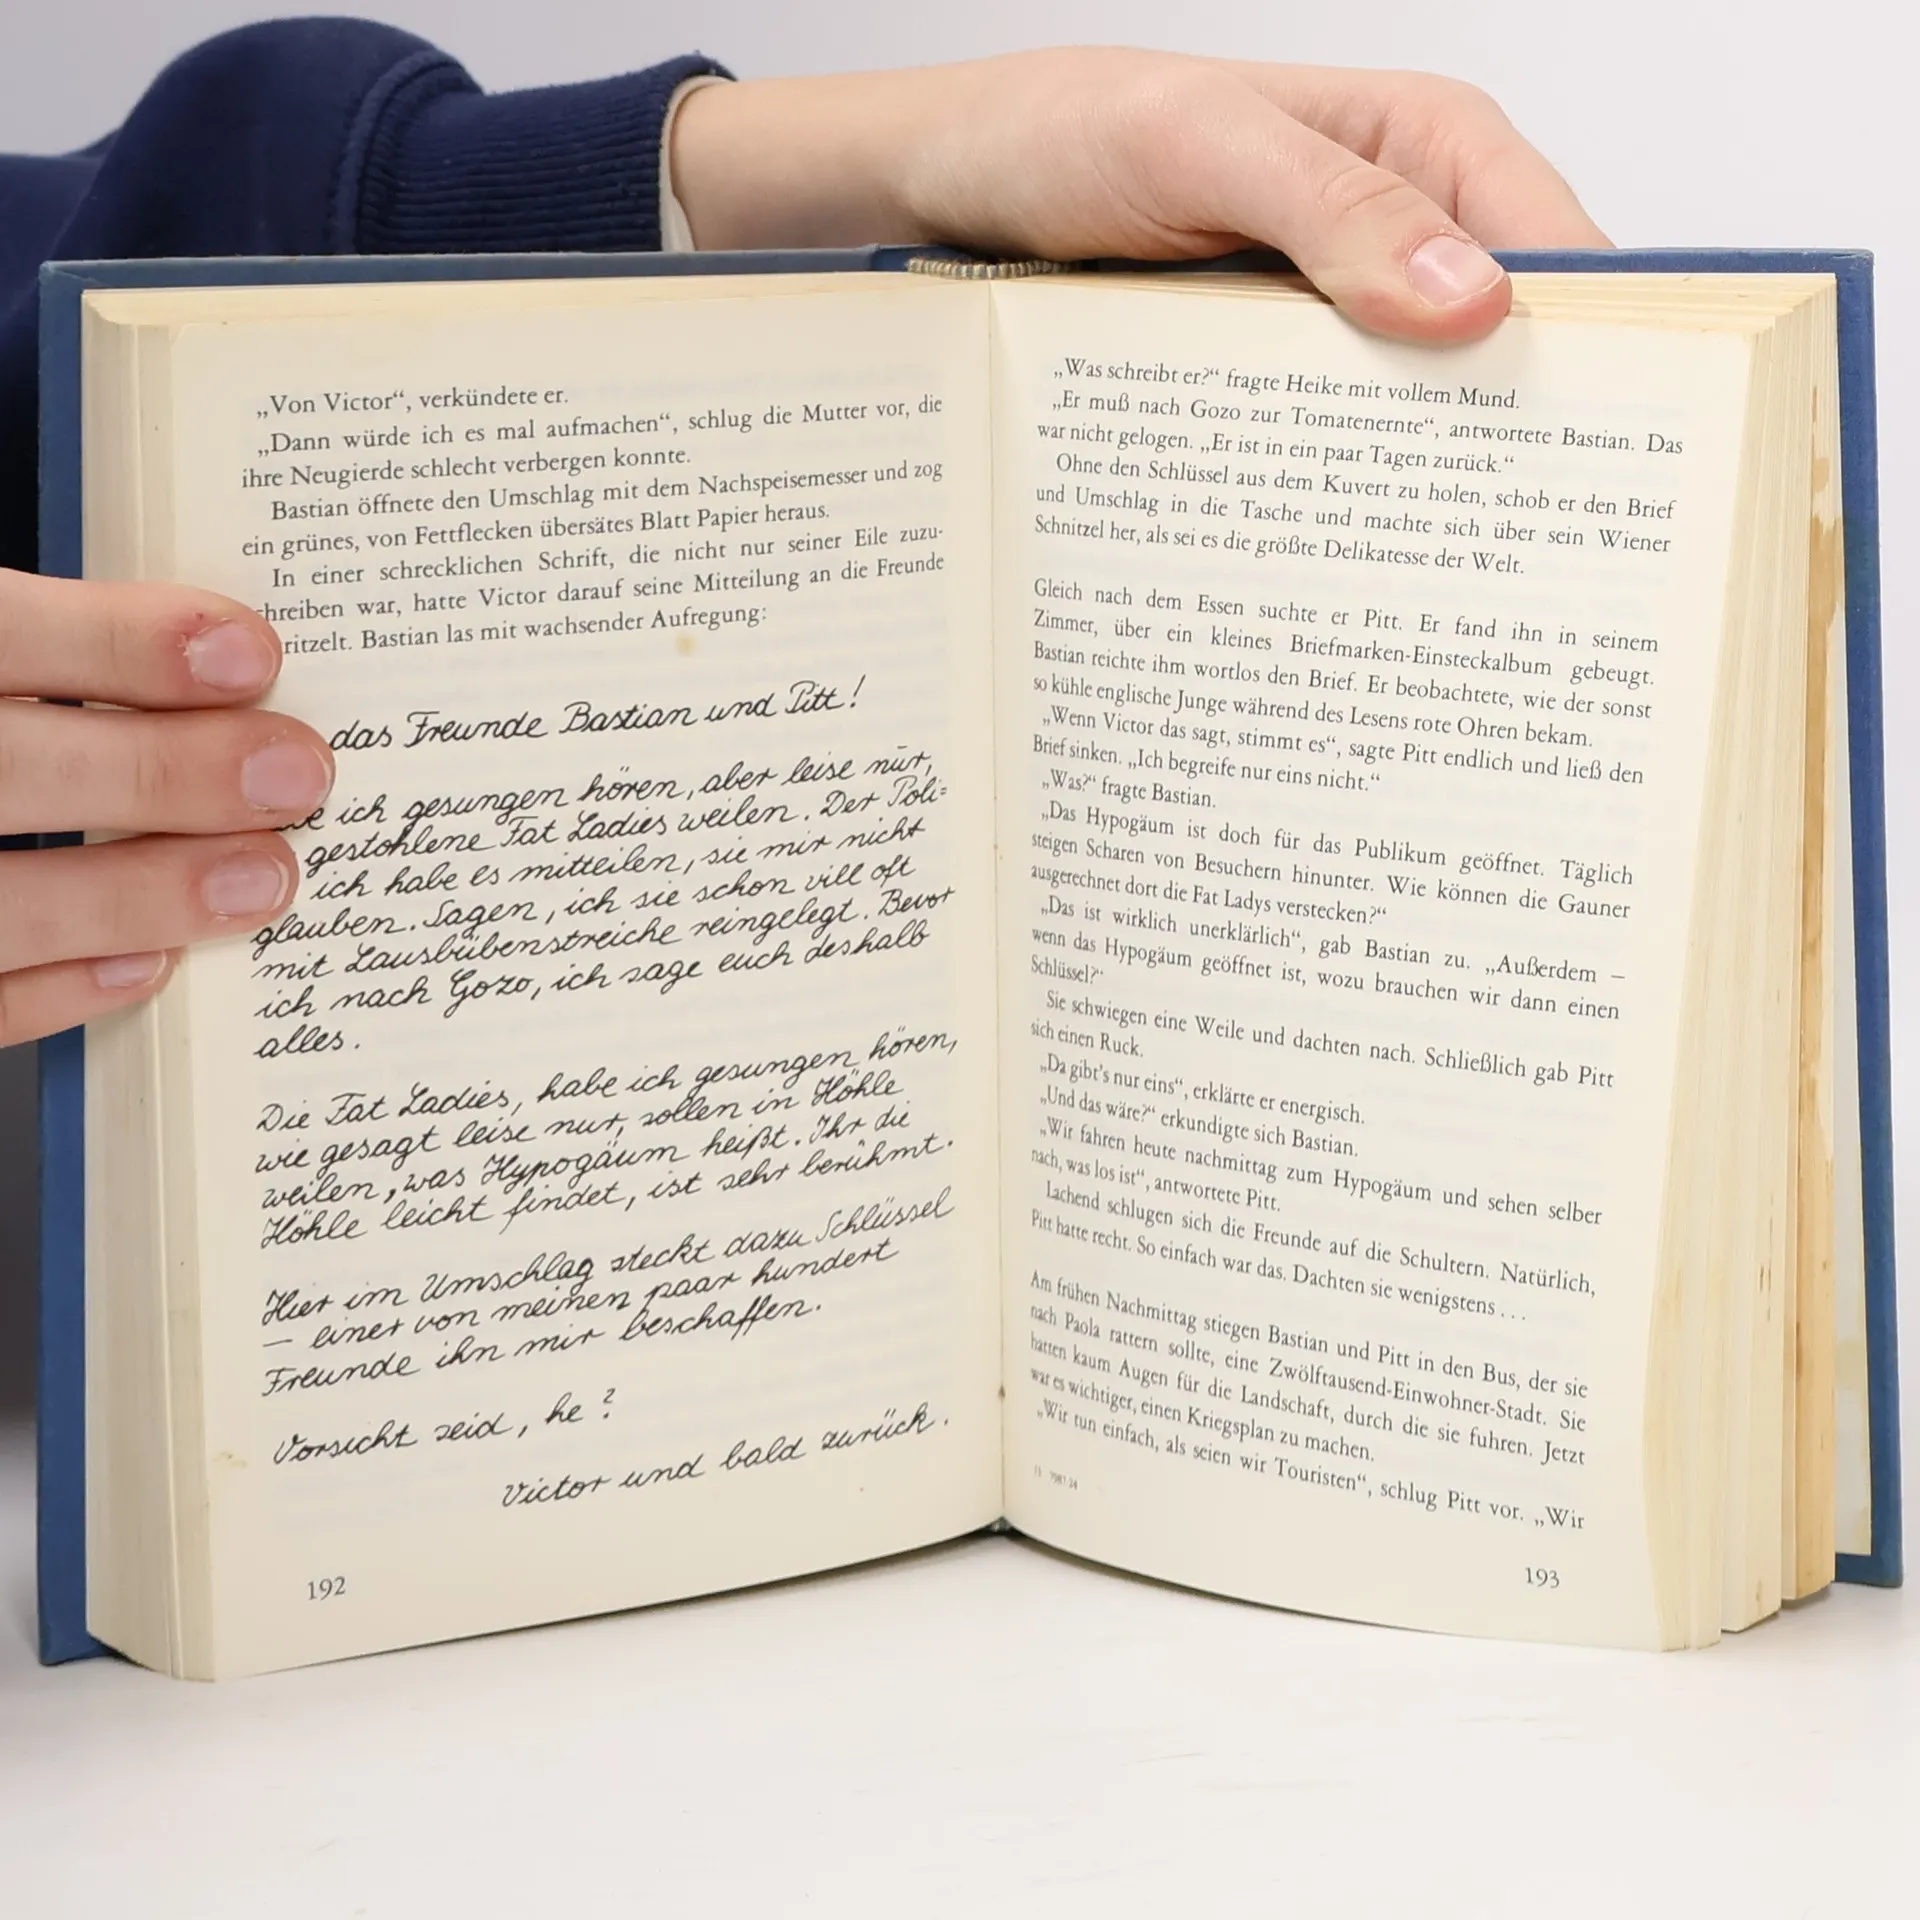 „Von Victor“, verkündete er.
„Dann würde ich es mal aufmachen“, schlug die Mutter vor, die
ihre Neugierde schlecht verbergen konnte.
Bastian öffnete den Umschlag mit dem Nachspeisemesser und zog
ein grünes, von Fettflecken übersätes Blatt Papier heraus.
In einer schrecklichen Schrift, die nicht nur seiner Eile zuzu-
hreiben war, hatte Victor darauf seine Mitteilung an die Freunde
ritzelt. Bastian las mit wachsender Aufregung:
das Freunde Bastian und Pitt!
ich gesungen hören, aber leise nur,
gestohlene Fat Ladies weilen. Der Poli=
ich habe es mitteilen, sie mir nicht
glauben. Sagen, ich sie schon vill oft
mit Lausbübenstreiche reingelegt. Bevor
ich nach Gozo, ich sage euch deshalb
alles.
Die Fat Ladies, habe ich gesungen hören,
wie gesagt leise nur, sollen in Höhle
weilen, was Hypogäum heißt. Ihr die
Höhle leicht findet, ist sehr berühmt.
Hier im Umschlag steckt dazu Schlüssel
– einer von meinen paar hundert
Freunde ihn mir beschaffen.
Vorsicht seid, he?
Victor und bald zurück.
192
„Was schreibt er?“ fragte Heike mit vollem Mund.
„Er muß nach Gozo zur Tomatenernte“, antwortete Bastian. Das
war nicht gelogen. „Er ist in ein paar Tagen zurück.“
Ohne den Schlüssel aus dem Kuvert zu holen, schob er den Brief
und Umschlag in die Tasche und machte sich über sein Wiener
Schnitzel her, als sei es die größte Delikatesse der Welt.
Gleich nach dem Essen suchte er Pitt. Er fand ihn in seinem
Zimmer, über ein kleines Briefmarken-Einsteckalbum gebeugt.
Bastian reichte ihm wortlos den Brief. Er beobachtete, wie der sonst
so kühle englische Junge während des Lesens rote Ohren bekam.
„Wenn Victor das sagt, stimmt es“, sagte Pitt endlich und ließ den
Brief sinken. „Ich begreife nur eins nicht.“
„Was?“ fragte Bastian.
„Das Hypogäum ist doch für das Publikum geöffnet. Täglich
steigen Scharen von Besuchern hinunter. Wie können die Gauner
ausgerechnet dort die Fat Ladys verstecken?“
„Das ist wirklich unerklärlich“, gab Bastian zu. „Außerdem –
wenn das Hypogäum geöffnet ist, wozu brauchen wir dann einen
Schlüssel?“
Sie schwiegen eine Weile und dachten nach. Schließlich gab Pitt
sich einen Ruck.
„Da gibt's nur eins“, erklärte er energisch.
„Und das wäre?“ erkundigte sich Bastian.
„Wir fahren heute nachmittag zum Hypogäum und sehen selber
nach, was los ist“, antwortete Pitt.
Lachend schlugen sich die Freunde auf die Schultern. Natürlich,
Pitt hatte recht. So einfach war das. Dachten sie wenigstens...
Am frühen Nachmittag stiegen Bastian und Pitt in den Bus, der sie
nach Paola rattern sollte, eine Zwölftausend-Einwohner-Stadt. Sie
hatten kaum Augen für die Landschaft, durch die sie fuhren. Jetzt
war es wichtiger, einen Kriegsplan zu machen.
„Wir tun einfach, als seien wir Touristen“, schlug Pitt vor. „Wir
193